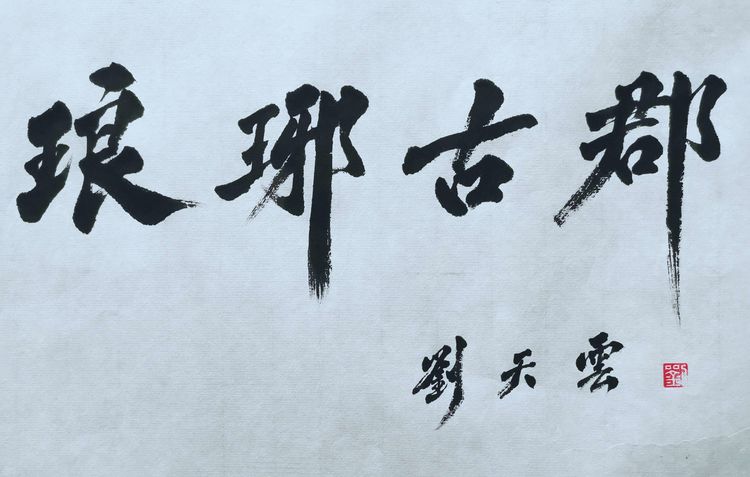 琅琊古郡
劉天雲